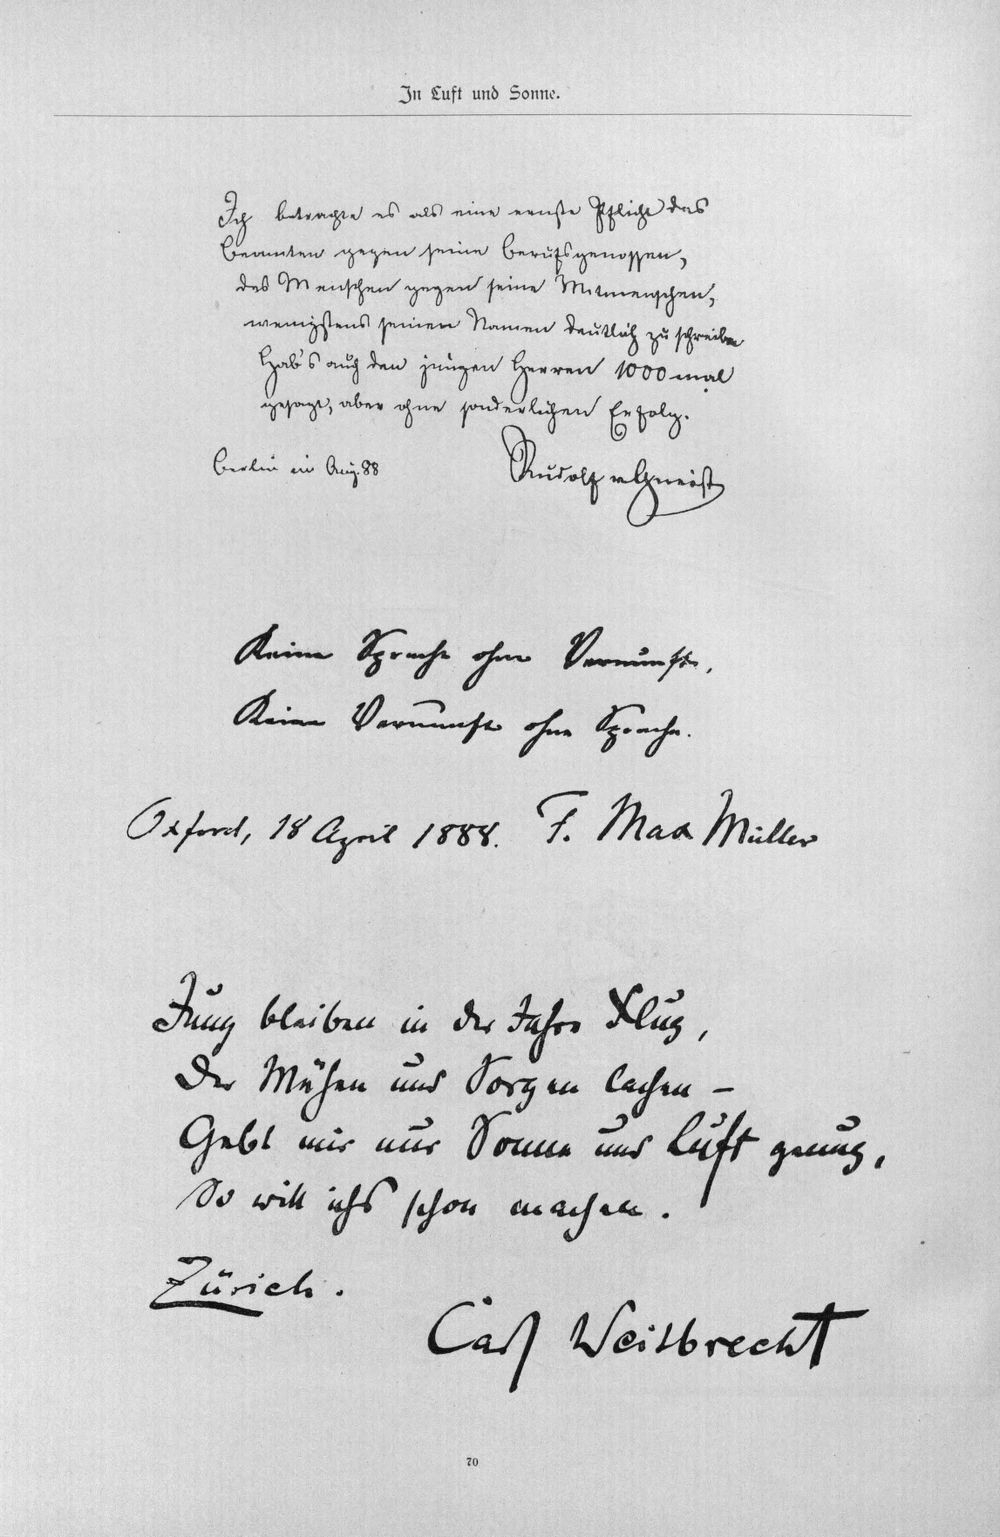 In Luft und Sonne.
Ich betrachte es als eine ernste Pflicht des
Beamten gegen seine Berufsgenossen,
des Menschen gegen seine Mitmenschen,
wenigstens seinen Namen deutlich zu schreiben
Hab's auch den jungen Herren 1000 mal
gesagt, aber ohne sonderlichen Erfolg.
Berlin im Aug. 88
Rudolf v Gneist
Keine Sprache ohne Vernunft,
Keine Vernunft ohne Sprache.
Oxford, 18 April 1888. F. Max Müller
Jung bleiben in der Jahre Flug,
Der Mühen und Sorgen lachen –
Gebt mir nur Sonne und Luft genug,
So will ichs schon machen.
Zürich.
Carl Weitbrecht
70